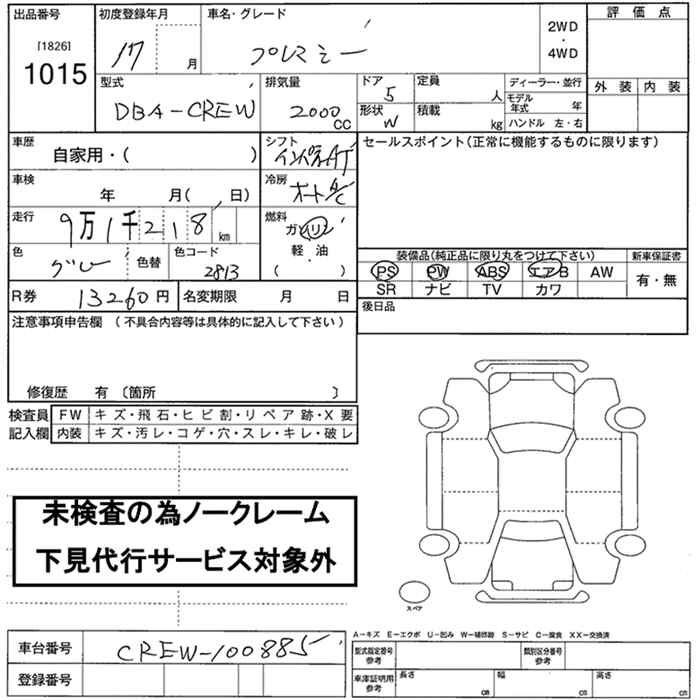 出品番号 初度登録年月 車名・グレード 2WD・4WD 評価点
[1826]
1015 17 月 プレミシー
外装 内装
型式 排気量 ドア 定員 ディーラー・並行
DBA-CREW 2000 CC 5 人 モデル年式 年
形状 W 積載 kg ハンドル 左・右
車歴 シフト セールスポイント(正常に機能するものに限ります)
自家用・( ) インパネAT
車検 冷房
年 月( 日) オートA/C
走行 燃料
9万1千218 km ガソリン
軽・油
色 色替 色コード ・
グレー 2813 ( )
装備品(純正品に限り丸をつけて下さい) 新車保証書
PS PW ABS エアB AW 有・無
SR ナビ TV カワ
R券 13260円 名変期限 月 日 後日品
注意事項申告欄 (不具合内容等は具体的に記入して下さい)
修復歴 有 〔箇所 〕
検査員 FW キズ・飛石・ヒビ割・リペア跡・X要
記入欄 内装 キズ・汚レ・コゲ・穴・スレ・キレ・破レ
未検査の為ノークレーム
下見代行サービス対象外
スペア
A−キズ E−エクボ U−凹み W−補修跡 S−サビ C−腐食 XX−交換済
車台番号 CREW-100885 型式指定番号 参考 類別区分番号 参考
登録番号 車庫証明用 参考 長さ cm 幅 cm 高さ cm